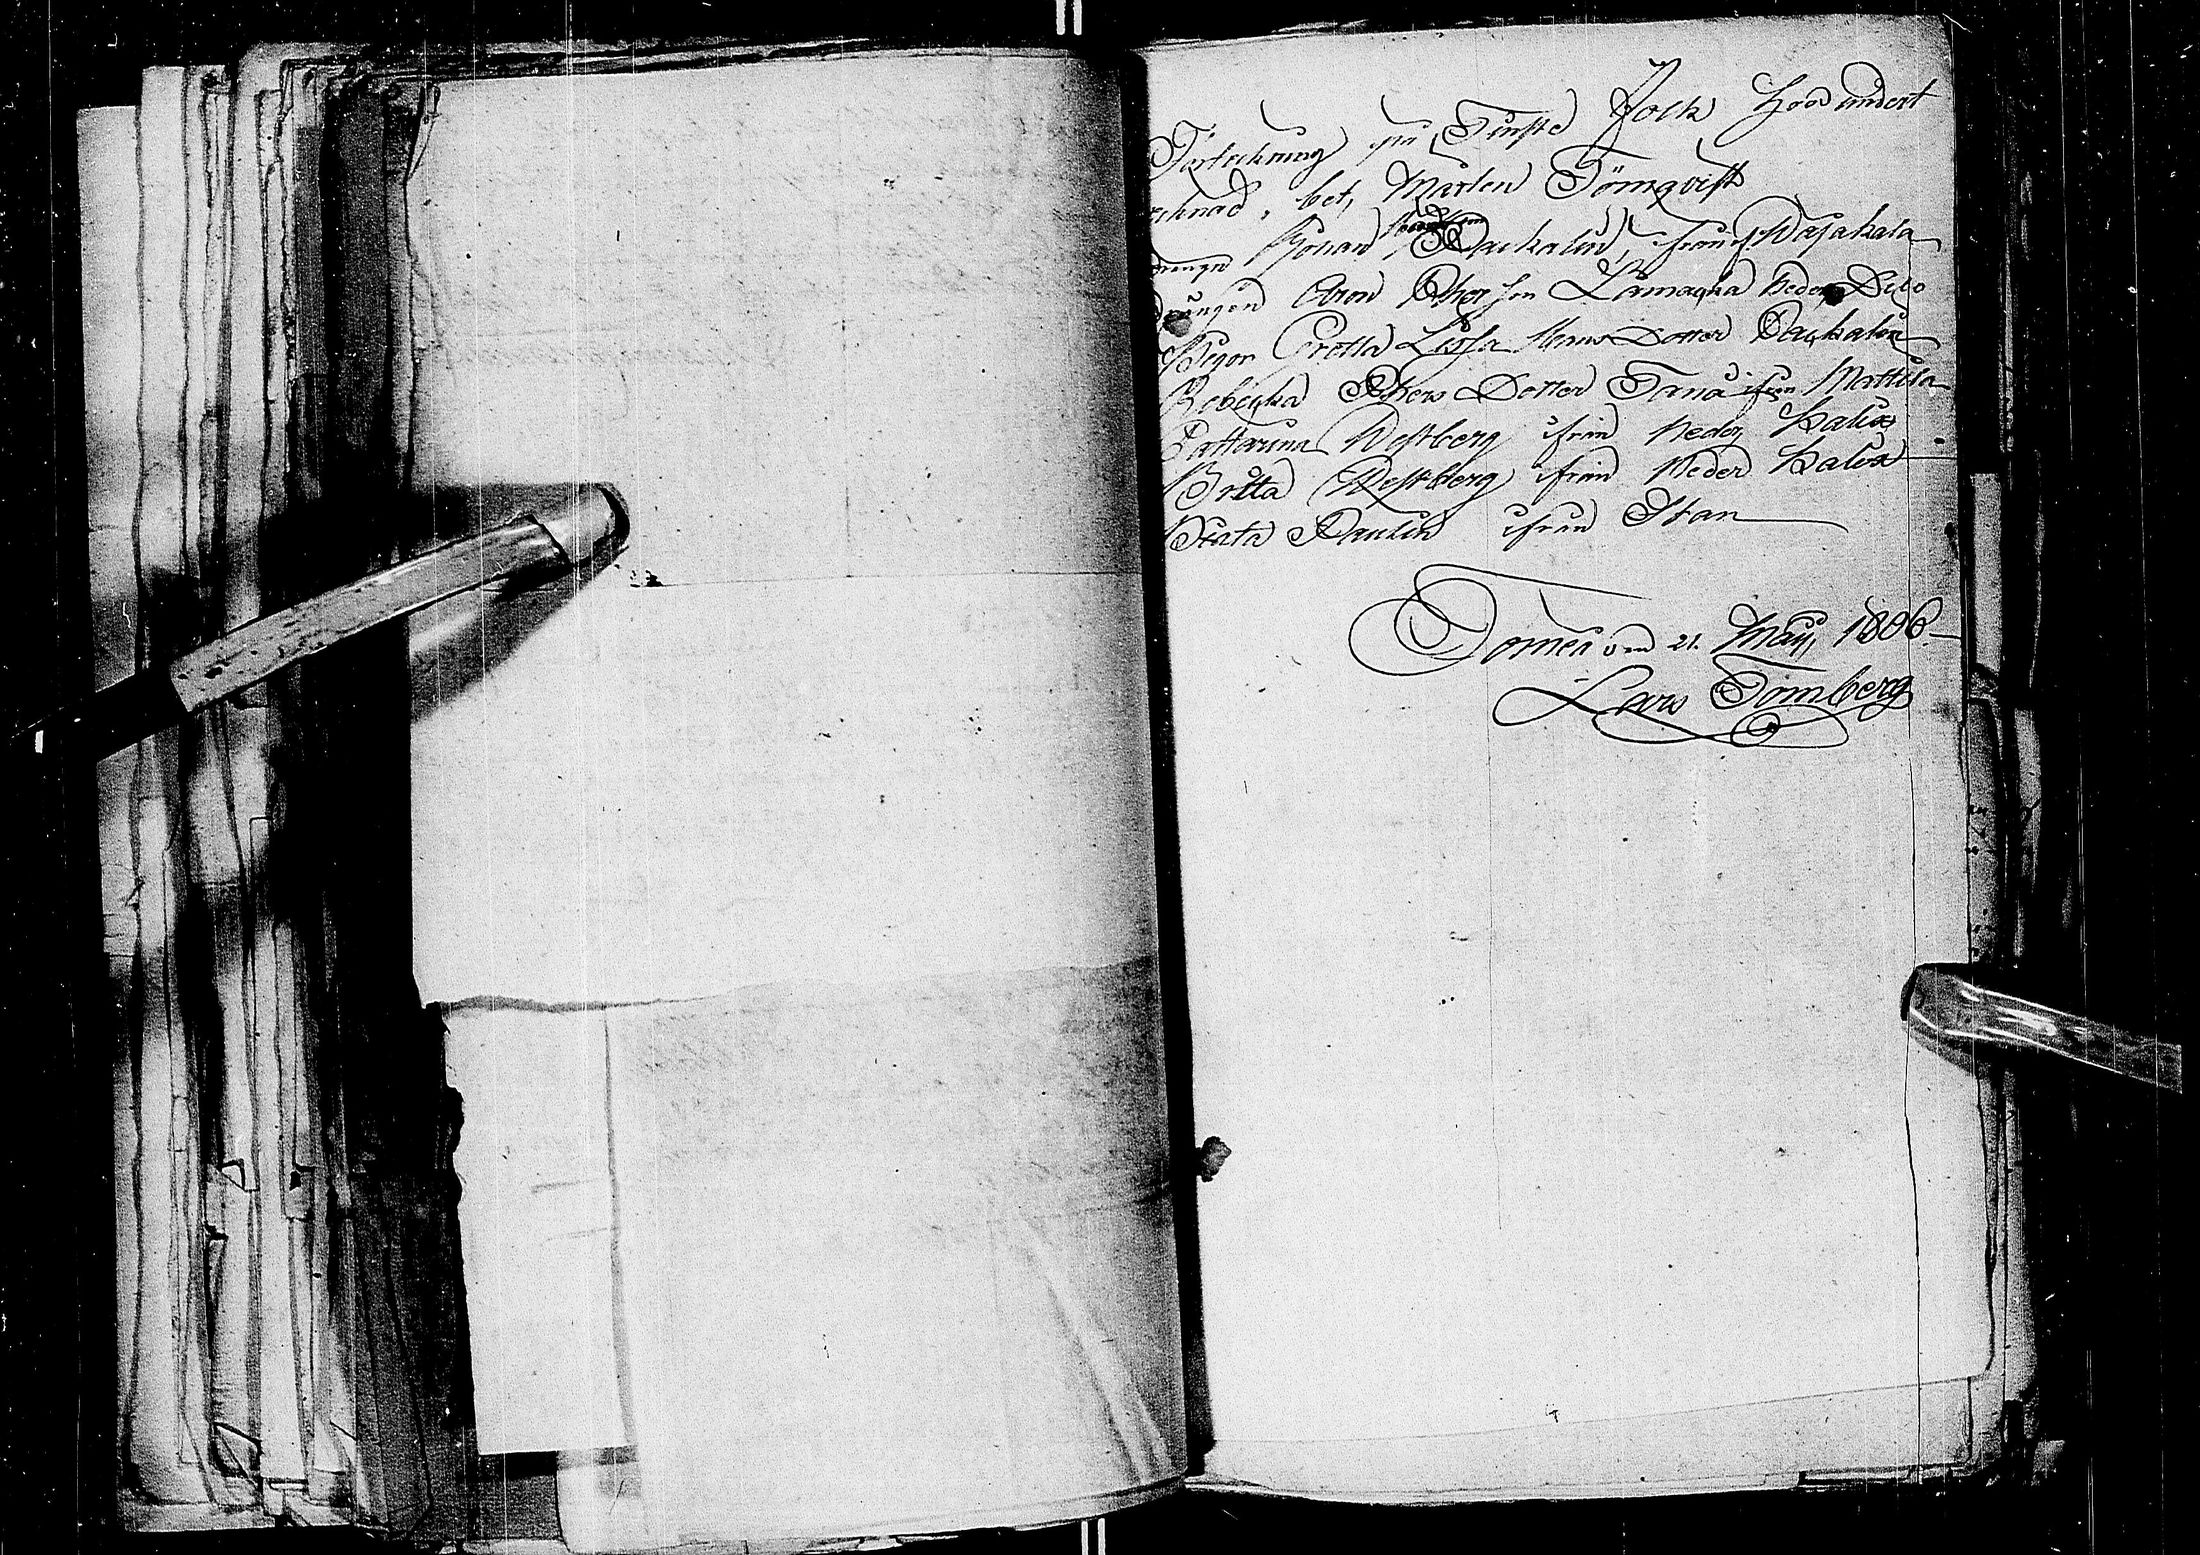 Förteckning på Tienste Folk hoos undert
cknad, bet, Mårten Törnqvist
Drängen Johan Packalen, ifrån Wojakala
Drängen Aron Pher son Lamagna Neder Dito
Pigor Gretta Lissa Hans Dotter Packalen
Rebecka Phers Dotter Tana ifrån Mattila
Cattarina Westberg ifrån Neder Kalix
Brita Westberg ifrån Neder Kalix
Beata Paulin ifrån Stan
Torneå den 21. Maij, 1806.
Lars Tornberg